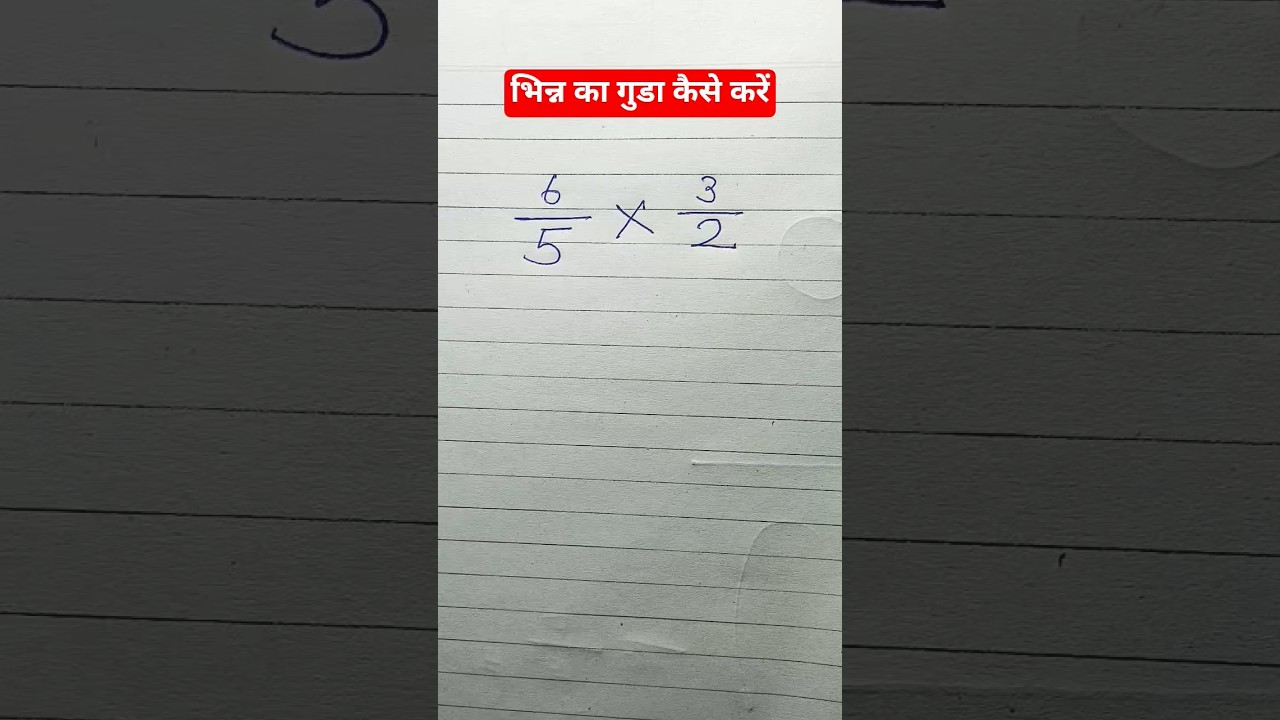 भिन्न का गुडा कैसे करें
6 3
— × —
5 2